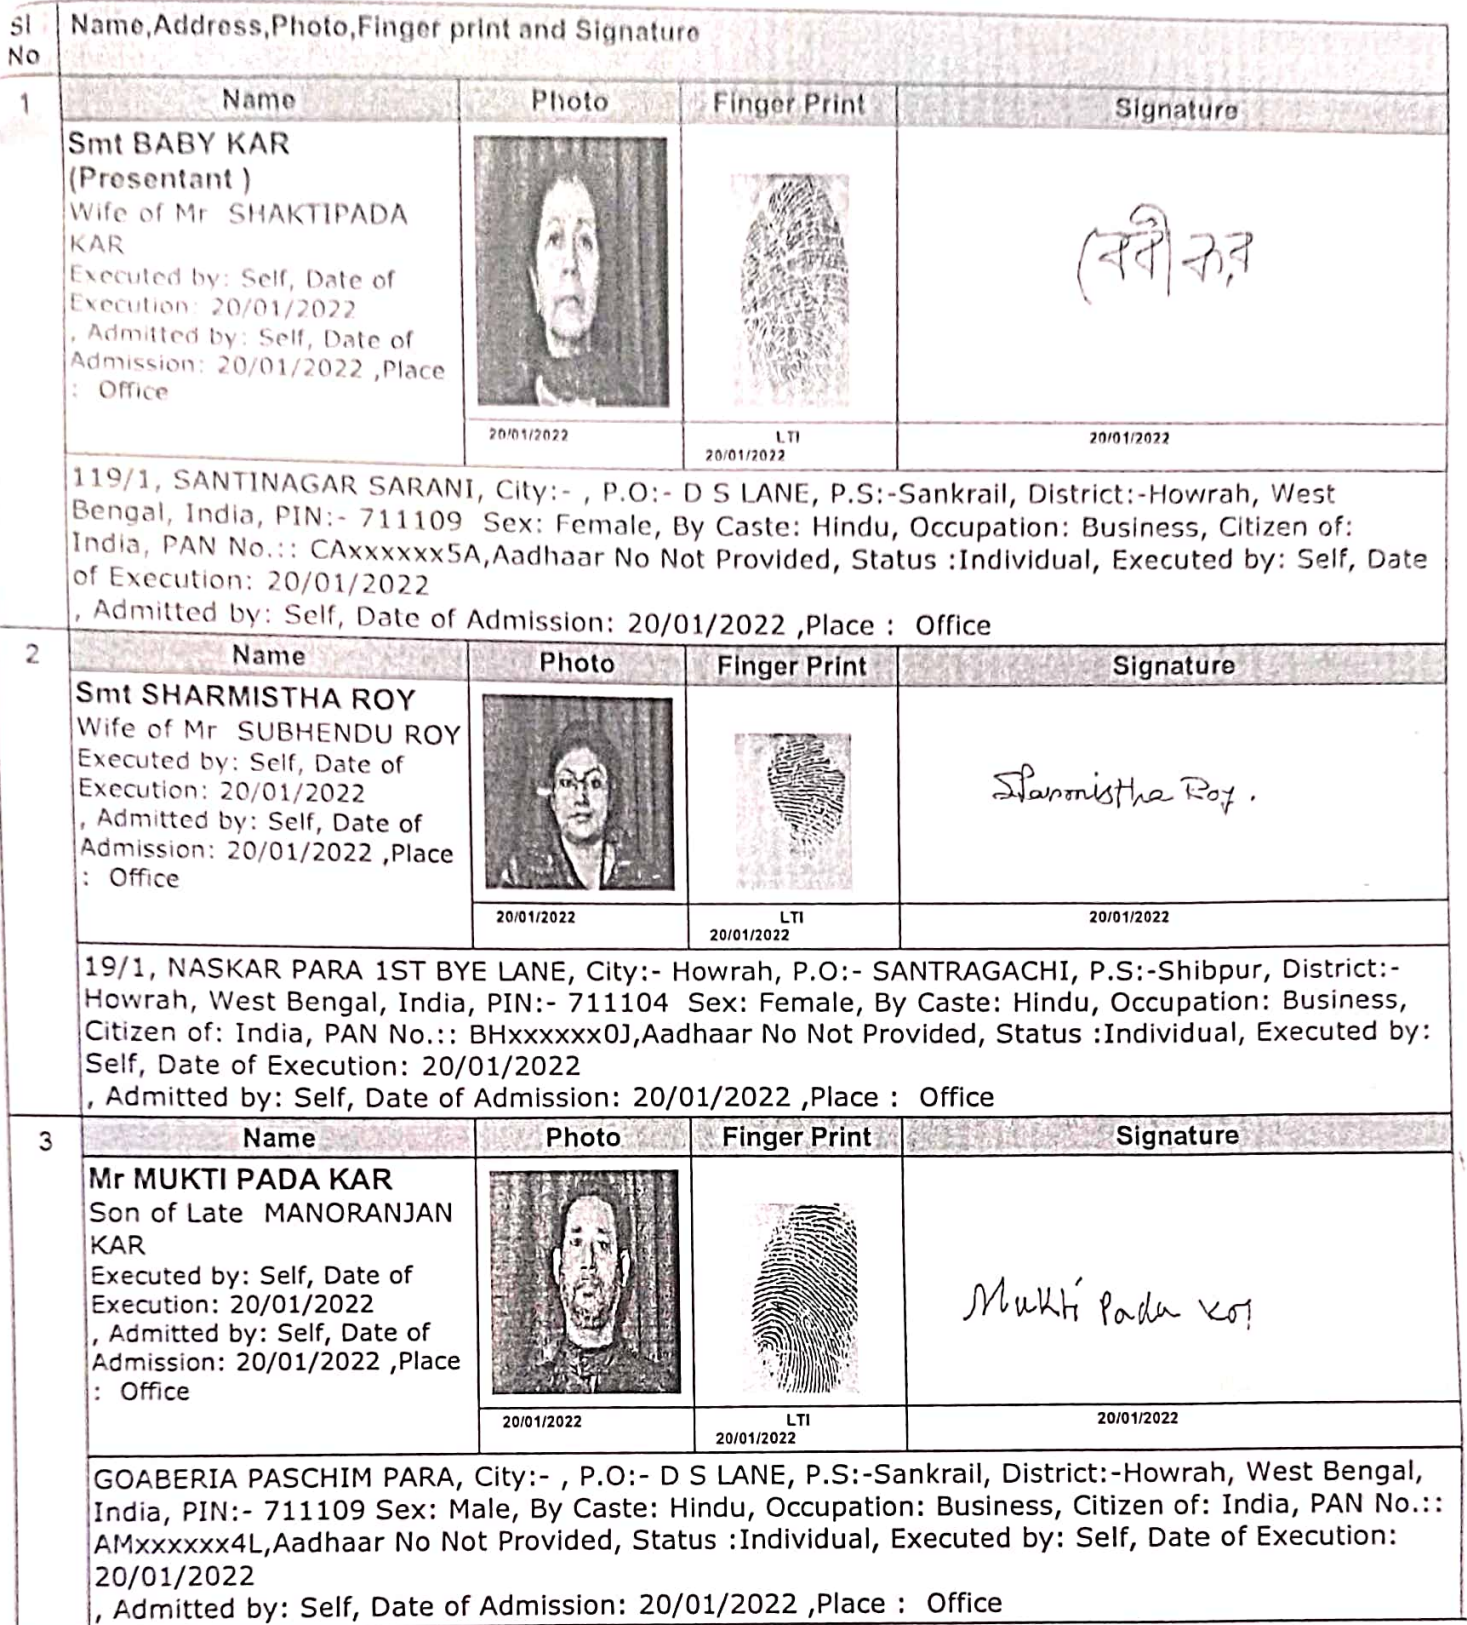 Sl No Name,Address,Photo,Finger print and Signature
1 Name Photo Finger Print Signature
Smt BABY KAR
(Presentant )
Wife of Mr SHAKTIPADA
KAR
Executed by: Self, Date of
Execution: 20/01/2022
, Admitted by: Self, Date of
Admission: 20/01/2022 ,Place
: Office
বেবী কর
20/01/2022 LTI 20/01/2022
20/01/2022
119/1, SANTINAGAR SARANI, City:- , P.O:- D S LANE, P.S:-Sankrail, District:-Howrah, West
Bengal, India, PIN:- 711109 Sex: Female, By Caste: Hindu, Occupation: Business, Citizen of:
India, PAN No.:: CAxxxxxx5A,Aadhaar No Not Provided, Status :Individual, Executed by: Self, Date
of Execution: 20/01/2022
, Admitted by: Self, Date of Admission: 20/01/2022 ,Place : Office
2 Name Photo Finger Print Signature
Smt SHARMISTHA ROY
Wife of Mr SUBHENDU ROY
Executed by: Self, Date of
Execution: 20/01/2022
, Admitted by: Self, Date of
Admission: 20/01/2022 ,Place
: Office
Sharmistha Roy.
20/01/2022 LTI 20/01/2022
20/01/2022
19/1, NASKAR PARA 1ST BYE LANE, City:- Howrah, P.O:- SANTRAGACHI, P.S:-Shibpur, District:-
Howrah, West Bengal, India, PIN:- 711104 Sex: Female, By Caste: Hindu, Occupation: Business,
Citizen of: India, PAN No.:: BHxxxxxx0J,Aadhaar No Not Provided, Status :Individual, Executed by:
Self, Date of Execution: 20/01/2022
, Admitted by: Self, Date of Admission: 20/01/2022 ,Place : Office
3 Name Photo Finger Print Signature
Mr MUKTI PADA KAR
Son of Late MANORANJAN
KAR
Executed by: Self, Date of
Execution: 20/01/2022
, Admitted by: Self, Date of
Admission: 20/01/2022 ,Place
: Office
Mukti Pada Kar
20/01/2022 LTI 20/01/2022
20/01/2022
GOABERIA PASCHIM PARA, City:- , P.O:- D S LANE, P.S:-Sankrail, District:-Howrah, West Bengal,
India, PIN:- 711109 Sex: Male, By Caste: Hindu, Occupation: Business, Citizen of: India, PAN No.::
AMxxxxxx4L,Aadhaar No Not Provided, Status :Individual, Executed by: Self, Date of Execution:
20/01/2022
, Admitted by: Self, Date of Admission: 20/01/2022 ,Place : Office